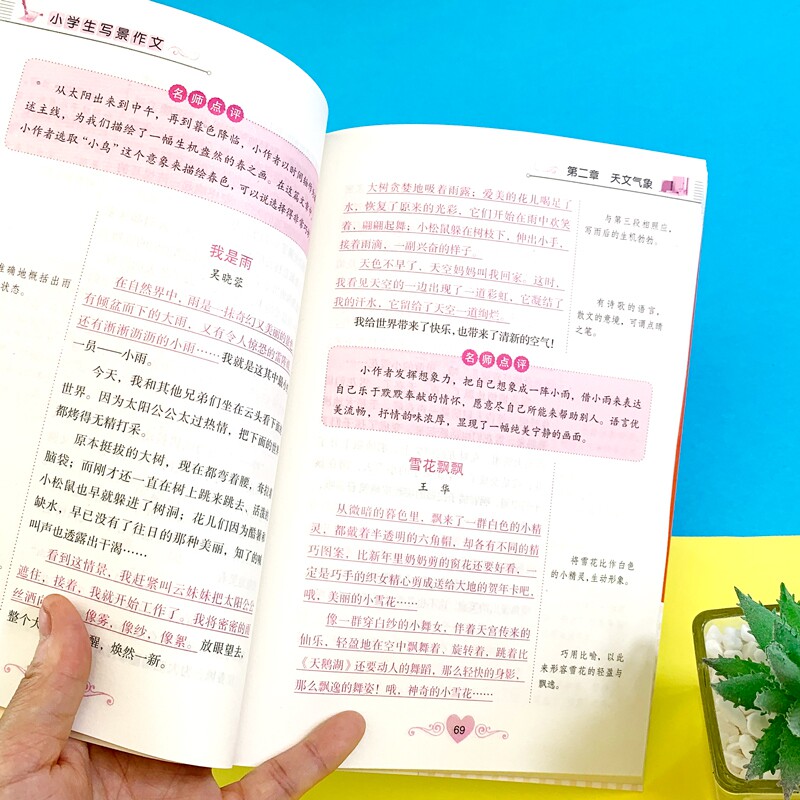 小学生写景作文
名师点评
从太阳出来到中午，再到暮色降临，小作者以时间
述主线，为我们描绘了一幅生机盎然的春之画。在这篇文
小作者选取“小鸟”这个意象来描绘春色，可以说选择得非常
我是雨
吴晓蓉
准确地概括出雨
状态。
在自然界中，雨是一抹奇幻又美丽的
有倾盆而下的大雨，又有令人惊恐的雷
还有淅淅沥沥的小雨……我就是这其中最小
一员——小雨。
今天，我和其他兄弟们坐在云头看下面
世界。因为太阳公公太过热情，把下面的世
都烤得无精打采。
原本挺拔的大树，现在都弯着腰，耷拉
脑袋；而刚才还一直在树上跳来跳去、活泼
小松鼠也早就躲进了树洞；花儿们因为酷暑
缺水，早已没有了往日的那种美丽，知了的
叫声也透露出干渴……
看到这情景，我赶紧叫云妹妹把太阳公公
遮住，接着，我就开始工作了。我将密密的雨
丝洒向
像雾，像纱，像絮。放眼望去，
整个大
醒，焕然一新。
第二章 天文气象
大树贪婪地吸着雨露；爱美的花儿喝足了
水，恢复了原来的光彩，它们开始在雨中欢笑
着，翩翩起舞；小松鼠躲在树枝下，伸出小手，
接着雨滴，一副兴奋的样子。
天色不早了，天空妈妈叫我回家。这时，
我看见天空的一边出现了一道彩虹，它凝结了
我的汗水，它留给了天空一道绚烂。
我给世界带来了快乐，也带来了清新的空气！
与第三段相照应，
写雨后的生机勃勃。
有诗歌的语言，
散文的意境，可谓点睛
之笔。
名师点评
小作者发挥想象力，把自己想象成一阵小雨，借小雨来表达
自己乐于默默奉献的情怀，愿意尽自己所能来帮助别人。语言优
美流畅，抒情韵味浓厚，显现了一幅纯美宁静的画面。
雪花飘飘
王 华
从微暗的暮色里，飘来了一群白色的小精
灵，都戴着半透明的六角帽，却各有不同的精
巧图案，比新年里奶奶剪的窗花还要好看，一
定是巧手的织女精心剪成送给大地的贺年卡吧，
哦，美丽的小雪花……
像一群穿白纱的小舞女，伴着天宫传来的
仙乐，轻盈地在空中飘舞着、旋转着，跳着比
《天鹅湖》还要动人的舞蹈，那么轻快的身影，
那么飘逸的舞姿！哦，神奇的小雪花……
将雪花比作白色
的小精灵，生动形象。
巧用比喻，以此
来形容雪花的轻盈与
飘逸。
69